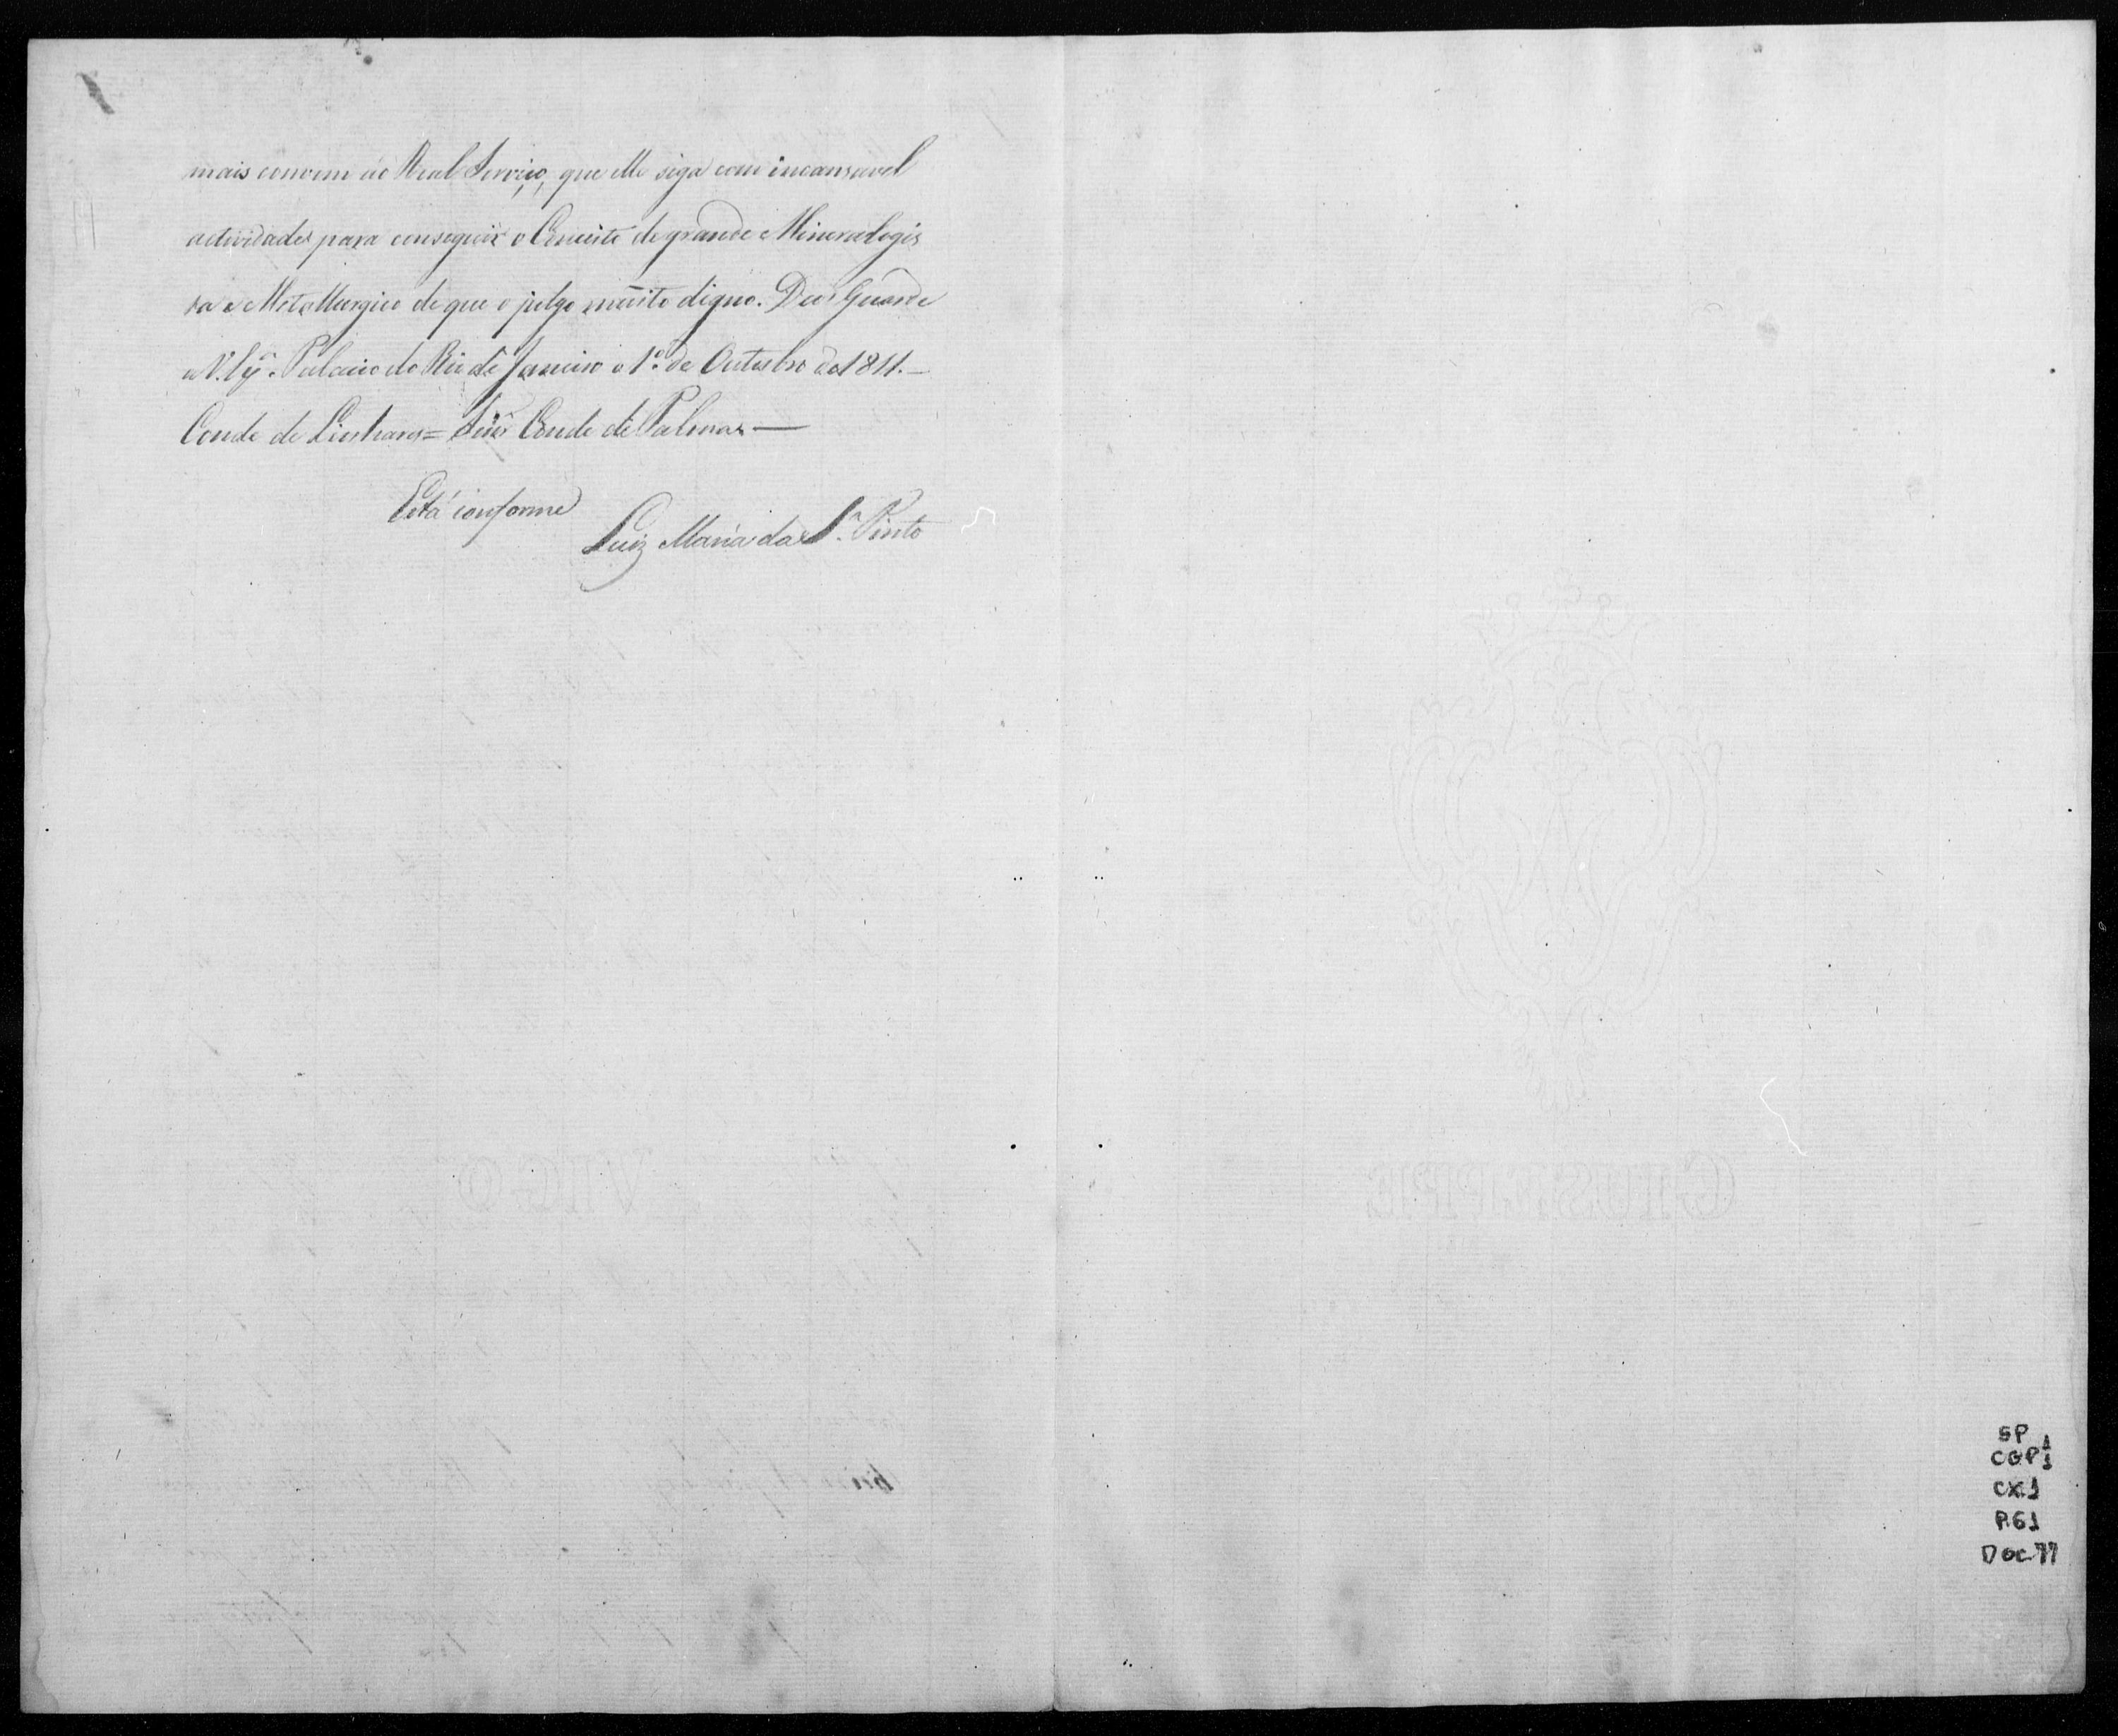 mais convem ao Real Serviço, que elle siga com incansavel
actividade para conseguir o Conceito de grande Mineralogis
ta e Metallurgico de que o julgo muito digno. Deos Guarde
a V. Exª. Palacio do Rio de Janeiro o 1º. de Outubro de 1811.—
Conde de Linhares = Snr̃ Conde de Palma —
Está conforme
Luiz Maria da Sª. Pinto
GIUSEPPE
VIGO
SP 1
CGP 1
CX 1
P. 61
Doc 77